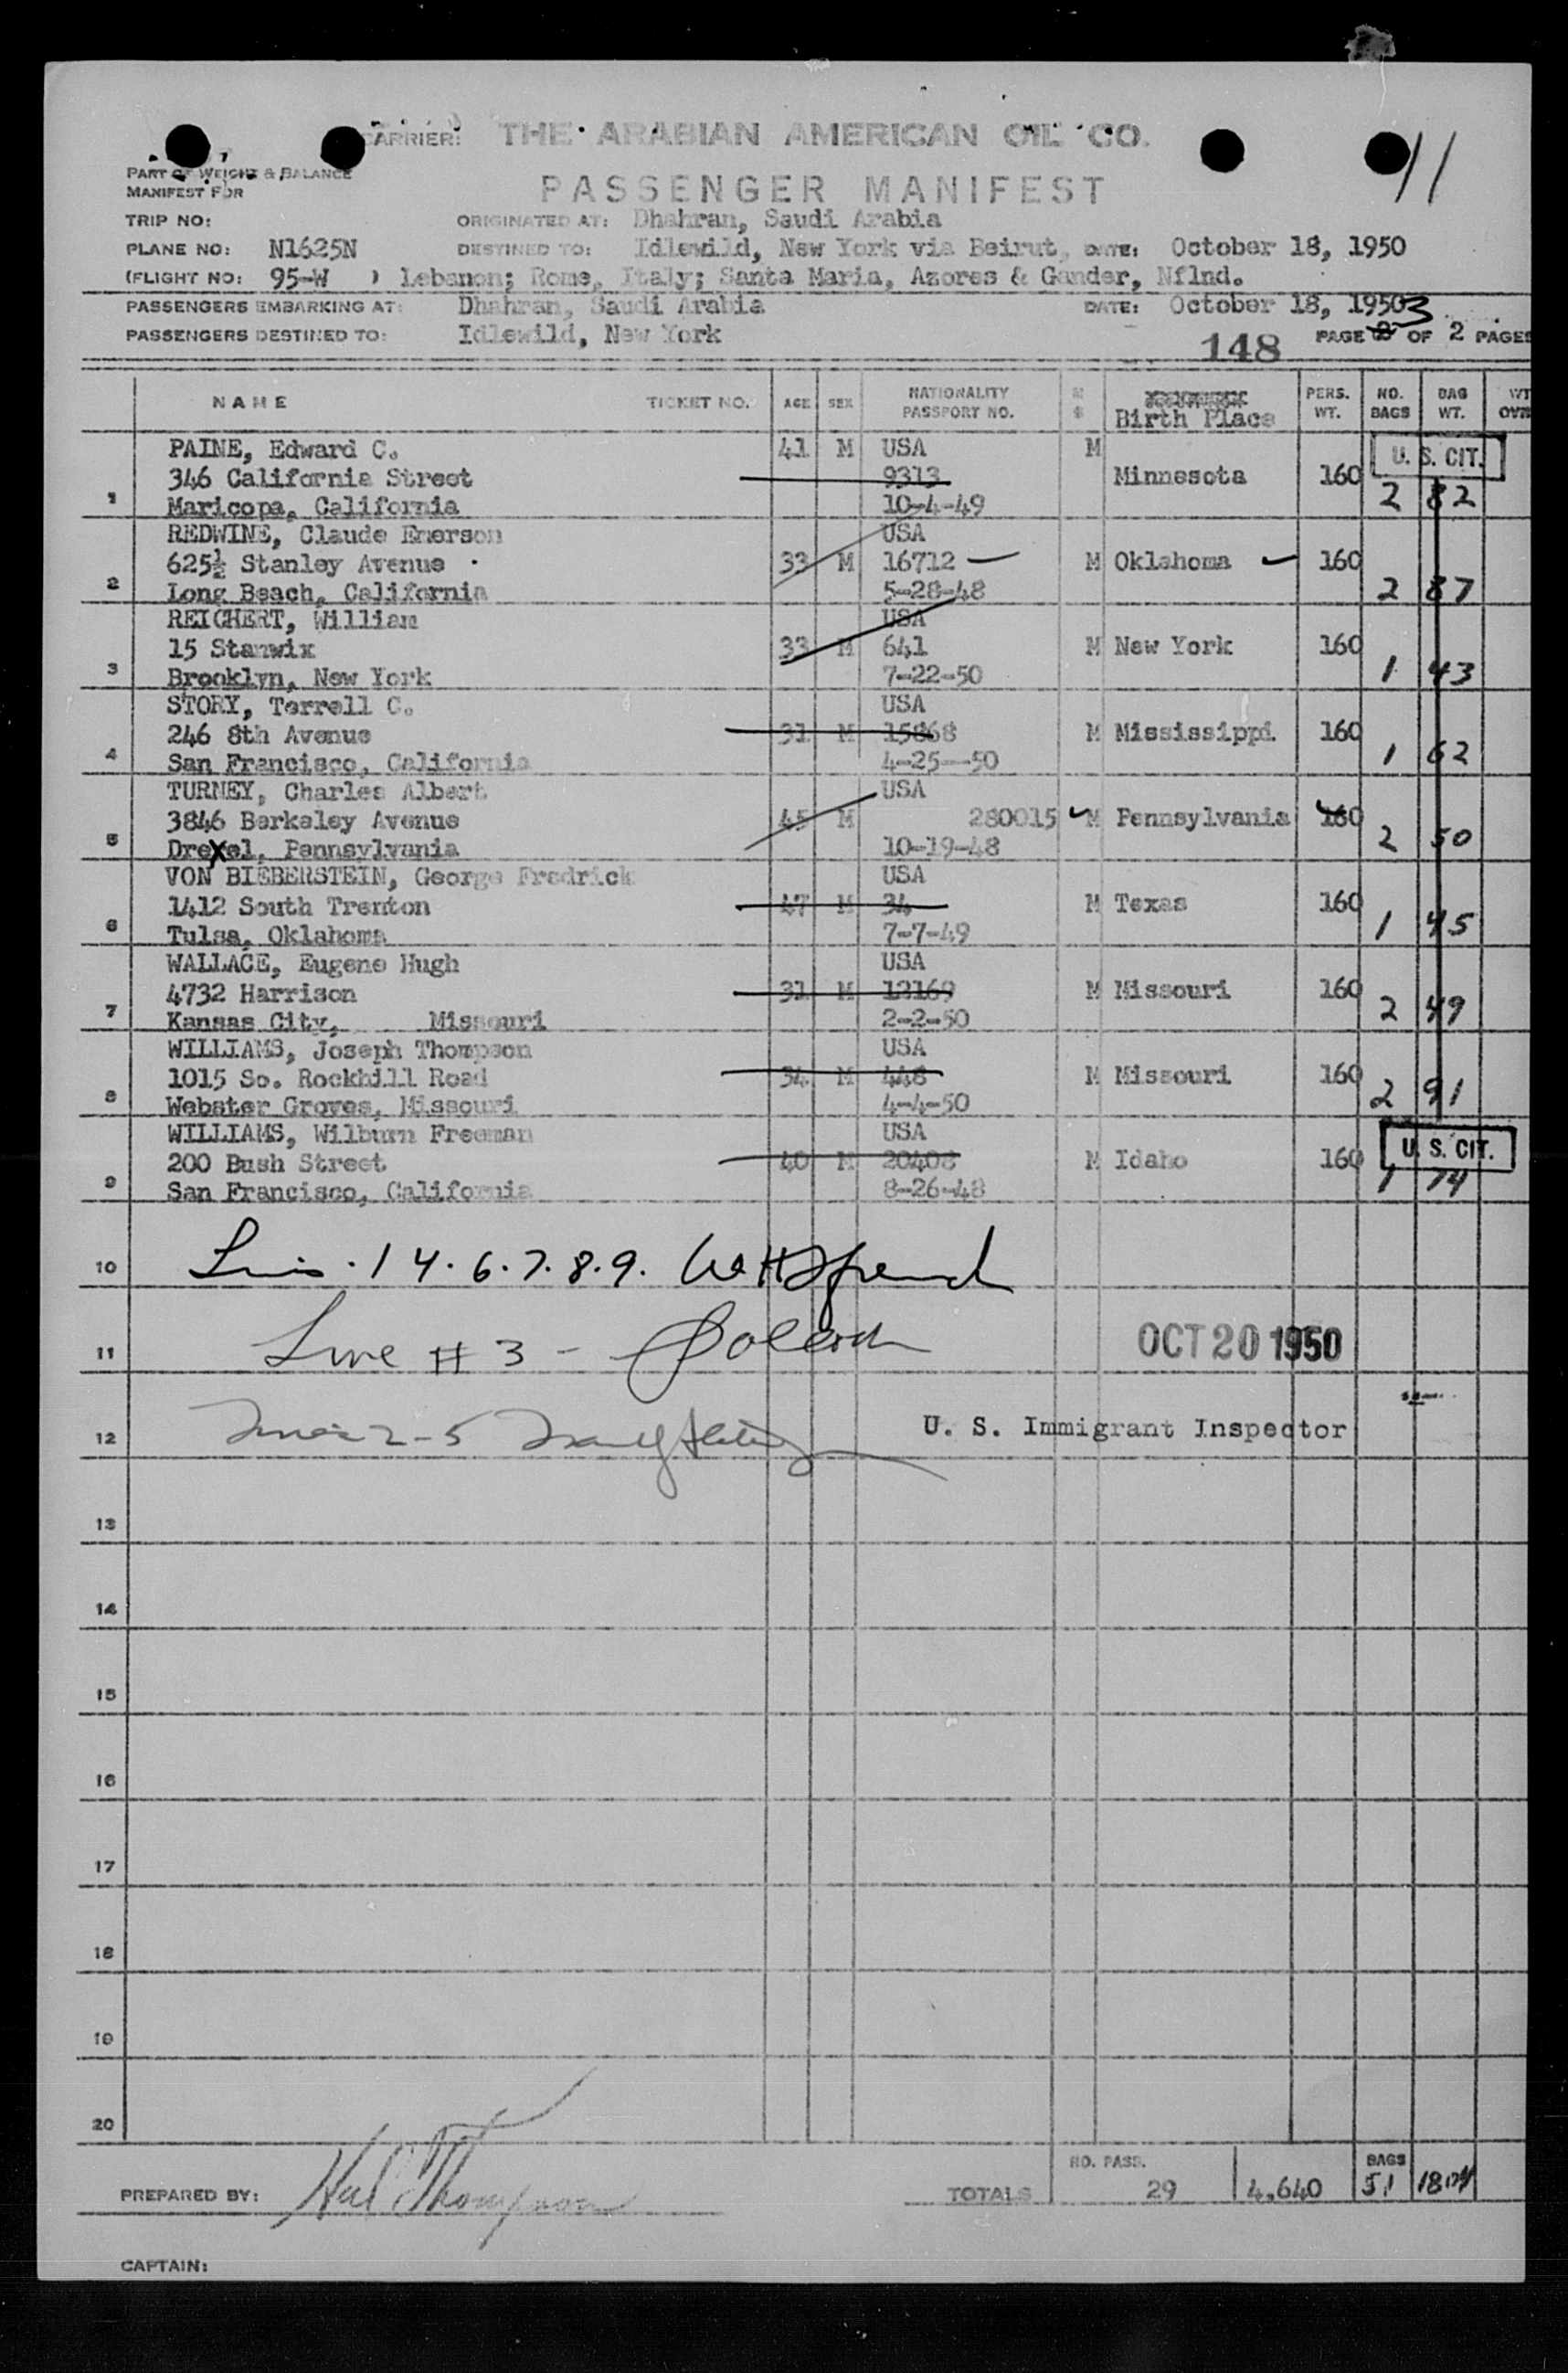 CARRIER: THE ARABIAN AMERICAN OIL CO.
11
PART OF WEIGHT & BALANCE
MANIFEST FOR
PASSENGER MANIFEST
TRIP NO: ORIGINATED AT: Dhahran, Saudi Arabia
PLANE NO: N1625N DESTINED TO: Idlewild, New York via Beirut, DATE: October 18, 1950
(FLIGHT NO: 95-W ) Lebanon; Rome, Italy; Santa Maria, Azores & Gander, Nflnd.
PASSENGERS EMBARKING AT: Dhahran, Saudi Arabia DATE: October 18, 1950
PASSENGERS DESTINED TO: Idlewild, New York 148 PAGE 3 OF 2 PAGES
NAME TICKET NO. AGE SEX NATIONALITY PASSPORT NO. Birth Place PERS. WT. NO. BAGS BAG WT. WT
PAINE, Edward C. 41 M USA M U. S. CIT.
346 California Street 9313 Minnesota 160
1 Maricopa, California 10-4-49 2 82
REDWINE, Claude Emerson USA
625½ Stanley Avenue 33 M 16712 M Oklahoma 160
2 Long Beach, California 5-28-48 2 87
REICHERT, William USA
15 Stanwix 33 M 641 M New York 160
3 Brooklyn, New York 7-22-50 1 43
STORY, Terrell C. USA
246 8th Avenue 31 M 15868 M Mississippi 160
4 San Francisco, California 4-25--50 1 62
TURNEY, Charles Albert USA
3846 Berkeley Avenue 45 M 280015 M Pennsylvania 160
5 Drexel, Pennsylvania 10-19-48 2 50
VON BIEBERSTEIN, George Fredrick USA
1412 South Trenton 47 M 34 M Texas 160
6 Tulsa, Oklahoma 7-7-49 1 45
WALLACE, Eugene Hugh USA
4732 Harrison 31 M 12169 M Missouri 160
7 Kansas City, Missouri 2-2-50 2 49
WILLIAMS, Joseph Thompson USA
1015 So. Rockhill Road 34 M 448 M Missouri 160
8 Webster Groves, Missouri 4-4-50 2 91
WILLIAMS, Wilburn Freeman USA
200 Bush Street 40 M 20408 M Idaho 160 U. S. CIT.
9 San Francisco, California 8-26-48 1 74
10 1 4. 6. 7. 8. 9.
11 Line # 3 - OCT 20 1950
12 2-5 U. S. Immigrant Inspector
13
14
15
16
17
18
19
20
PREPARED BY: Hal Thompson TOTALS NO. PASS. 29 4,640 BAGS 51 1804
CAPTAIN: